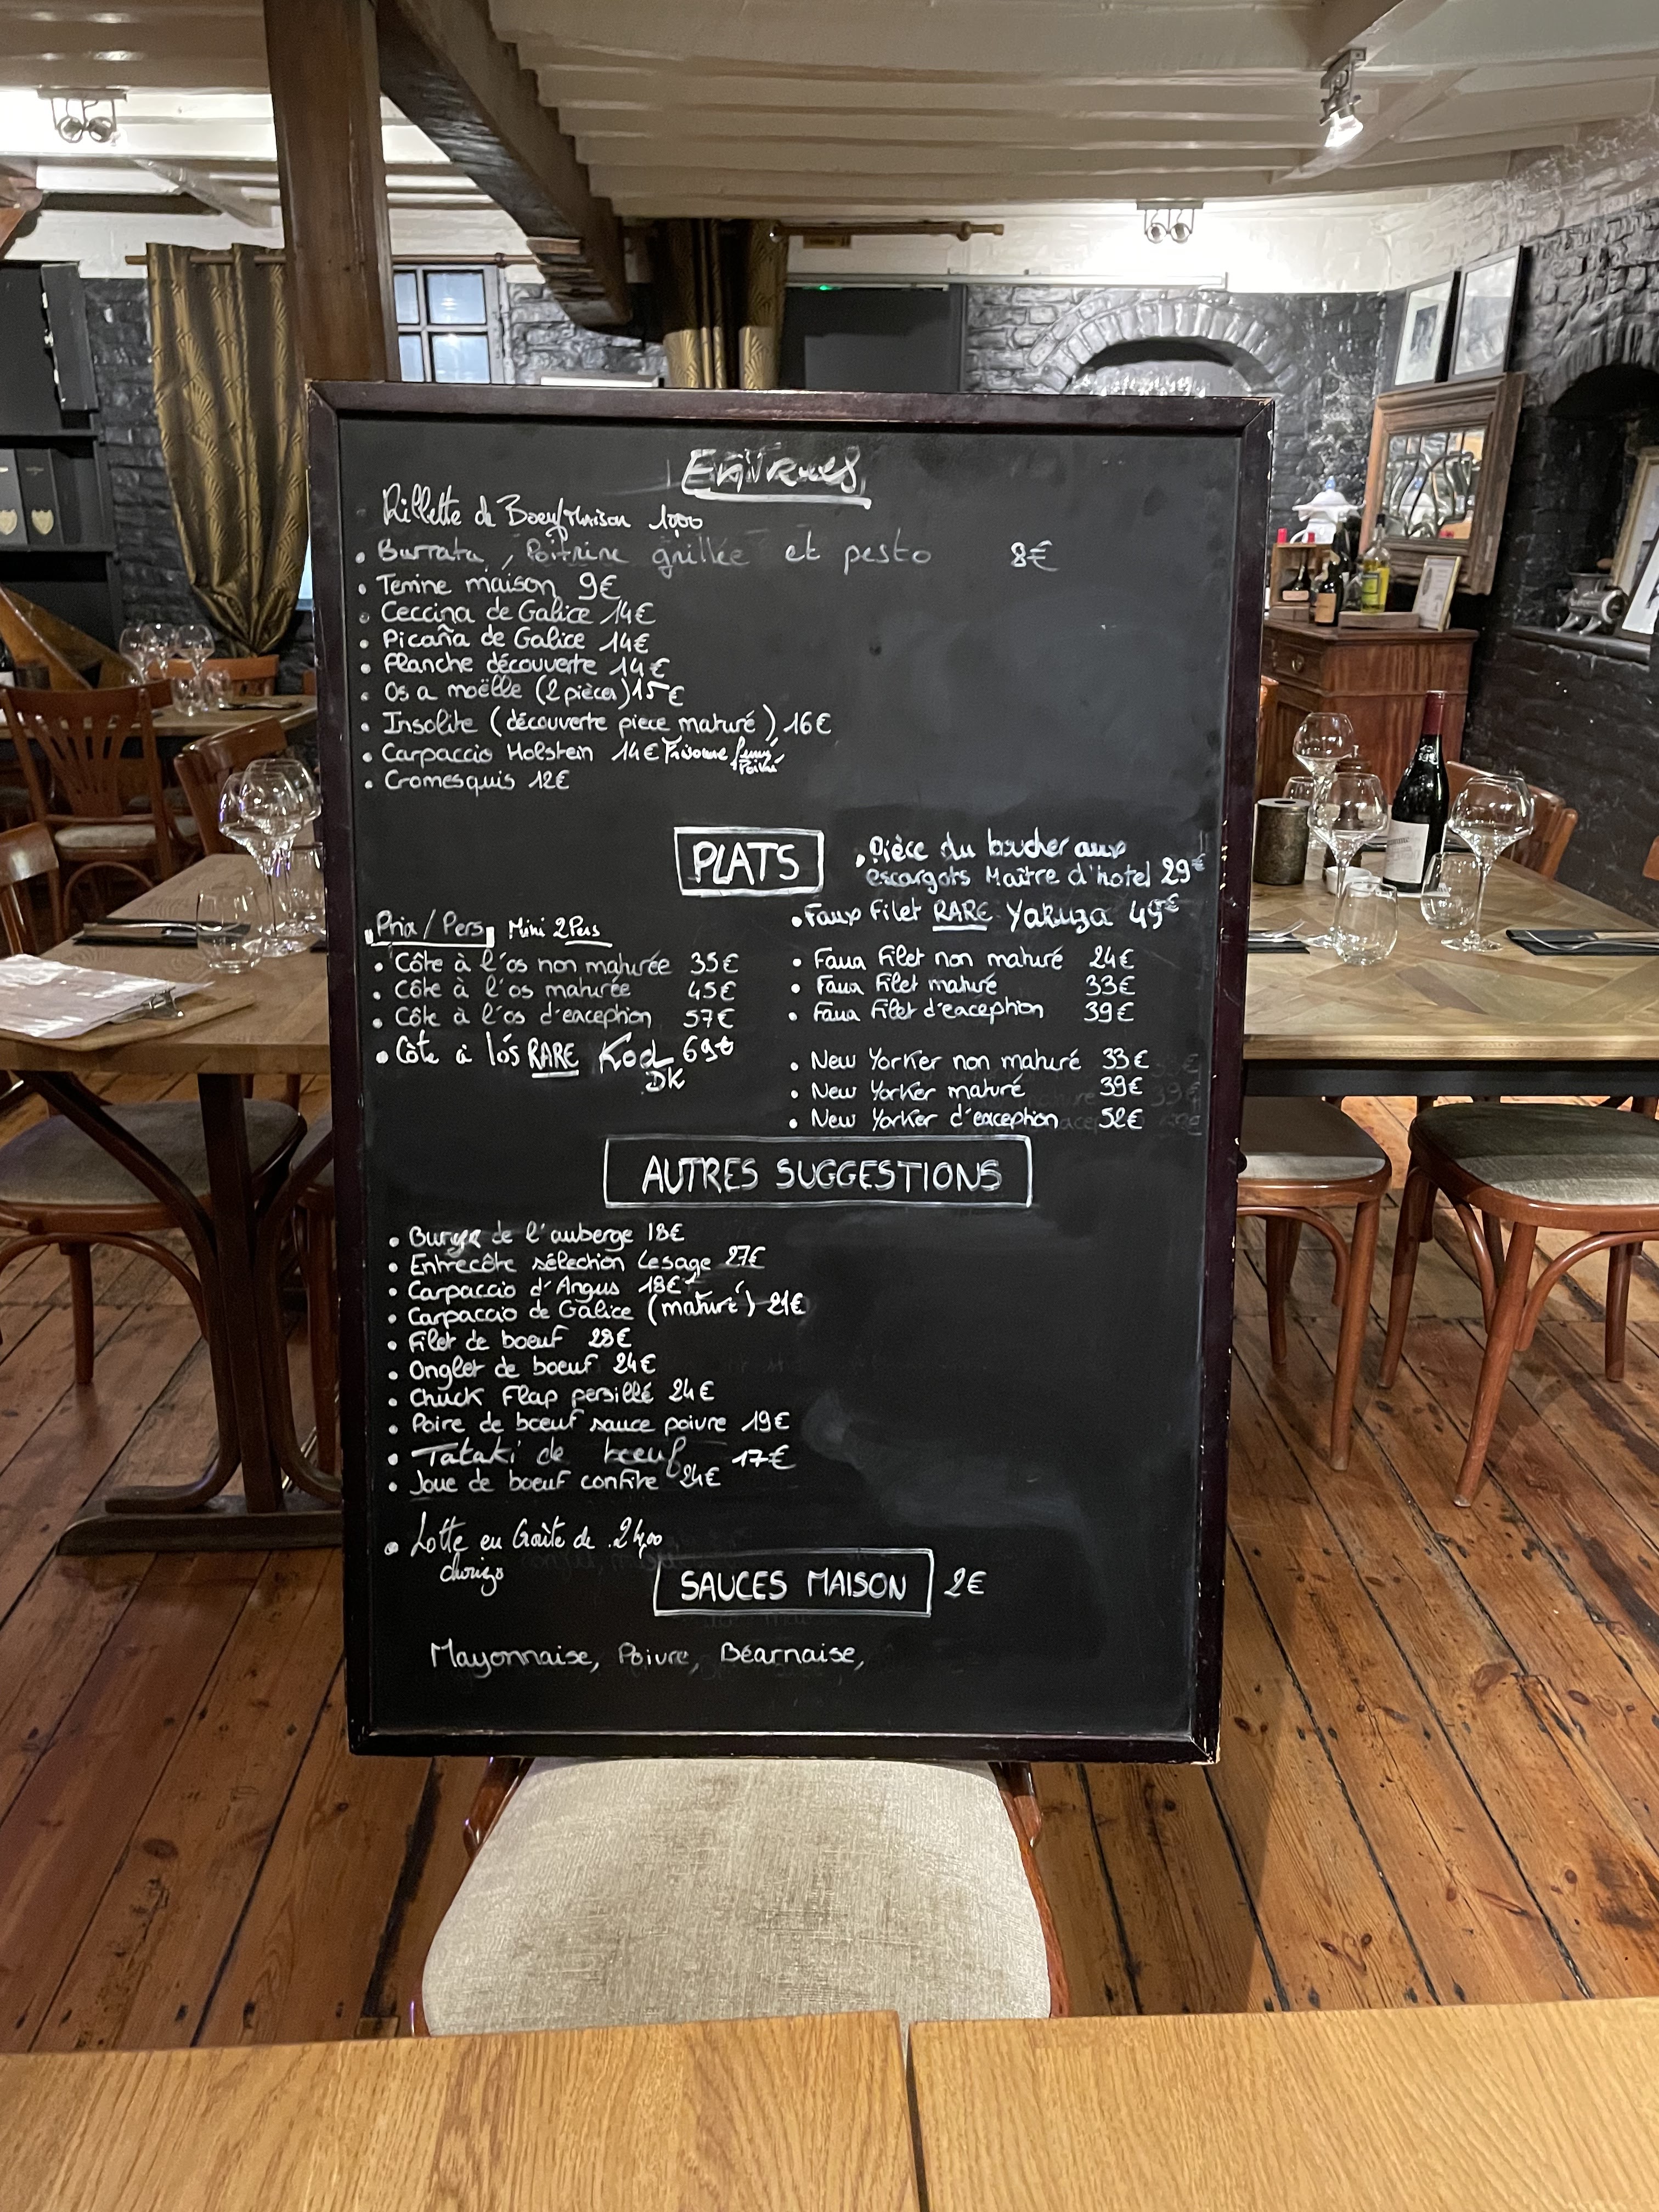 Entrees
Rillette de Boeuf Maison 10,00
Burrata, Poitrine grillée et pesto 8€
Terrine maison 9€
Ceccina de Galice 14€
Picaña de Galice 14€
Planche découverte 14€
Os a moëlle (2 pièces) 15€
Insolite (découverte piece maturé) 16€
Carpaccio Holstein 14€ Frisonne fumé
Poivré
Cromesquis 12€
PLATS
Pièce du boucher aux
escargots Maître d'hotel 29€
Faux Filet RARE Yakuza 49€
Prix / Pers Mini 2 Pers
Côte à l'os non maturée 35€
Côte à l'os maturée 45€
Côte à l'os d'exception 57€
Côte à l'os RARE Kod 69€
DK
Faux Filet non maturé 24€
Faux Filet maturé 33€
Faux Filet d'exception 39€
New Yorker non maturé 33€
New Yorker maturé 39€
New Yorker d'exception 52€
AUTRES SUGGESTIONS
Burger de l'auberge 18€
Entrecôte sélection Lesage 27€
Carpaccio d'Angus 18€
Carpaccio de Galice (maturé) 21€
Filet de boeuf 28€
Onglet de boeuf 24€
Chuck Flap persillé 24€
Poire de boeuf sauce poivre 19€
Tataki de boeuf 17€
Joue de boeuf confite 24€
Lotte en Croûte de 24,00
chorizo
SAUCES MAISON 2€
Mayonnaise, Poivre, Béarnaise,